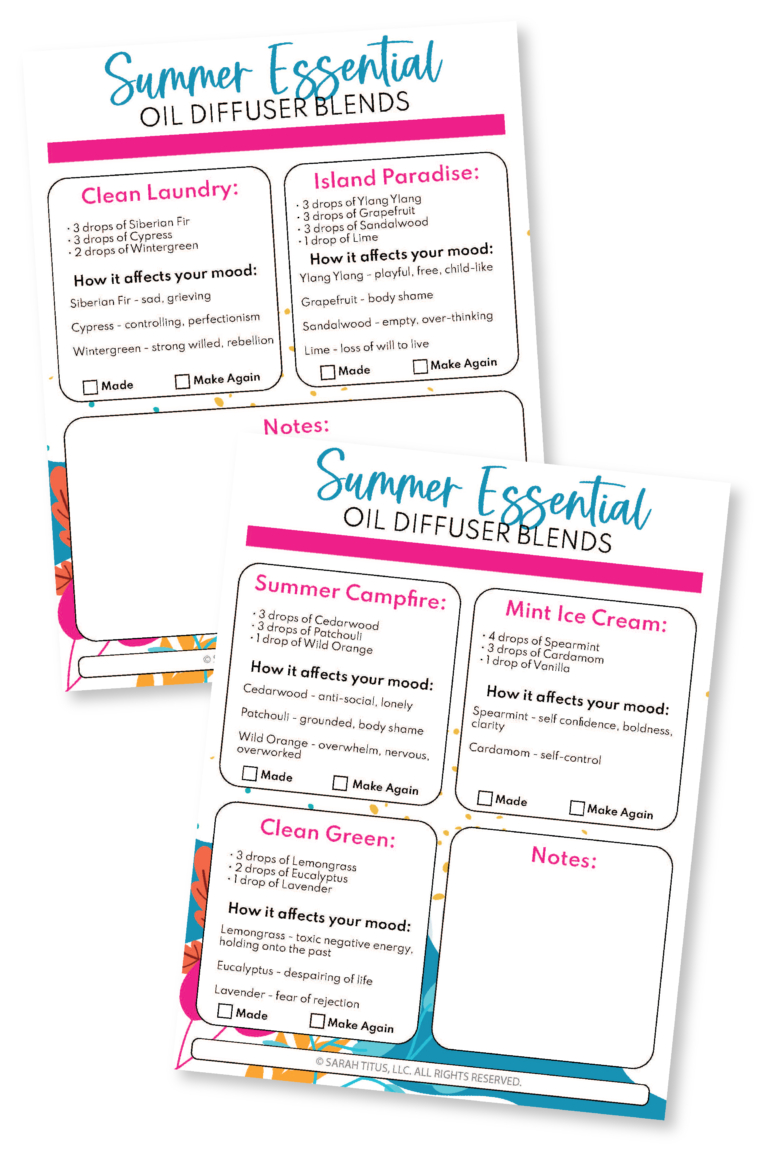 Summer Essential
OIL DIFFUSER BLENDS
Clean Laundry:
• 3 drops of Siberian Fir
• 3 drops of Cypress
• 2 drops of Wintergreen
How it affects your mood:
Siberian Fir - sad, grieving
Cypress - controlling, perfectionism
Wintergreen - strong willed, rebellion
Made
Make Again
Island Paradise:
• 3 drops of Ylang Ylang
• 3 drops of Grapefruit
• 3 drops of Sandalwood
• 1 drop of Lime
How it affects your mood:
Ylang Ylang - playful, free, child-like
Grapefruit - body shame
Sandalwood - empty, over-thinking
Lime - loss of will to live
Made
Make Again
Notes:
©
Summer Essential
OIL DIFFUSER BLENDS
Summer Campfire:
• 3 drops of Cedarwood
• 3 drops of Patchouli
• 1 drop of Wild Orange
How it affects your mood:
Cedarwood - anti-social, lonely
Patchouli - grounded, body shame
Wild Orange - overwhelm, nervous,
overworked
Made
Make Again
Mint Ice Cream:
• 4 drops of Spearmint
• 3 drops of Cardamom
• 1 drop of Vanilla
How it affects your mood:
Spearmint - self confidence, boldness,
clarity
Cardamom - self-control
Made
Make Again
Clean Green:
• 3 drops of Lemongrass
• 2 drops of Eucalyptus
• 1 drop of Lavender
How it affects your mood:
Lemongrass - toxic negative energy,
holding onto the past
Eucalyptus - despairing of life
Lavender - fear of rejection
Made
Make Again
Notes:
© SARAH TITUS, LLC. ALL RIGHTS RESERVED.